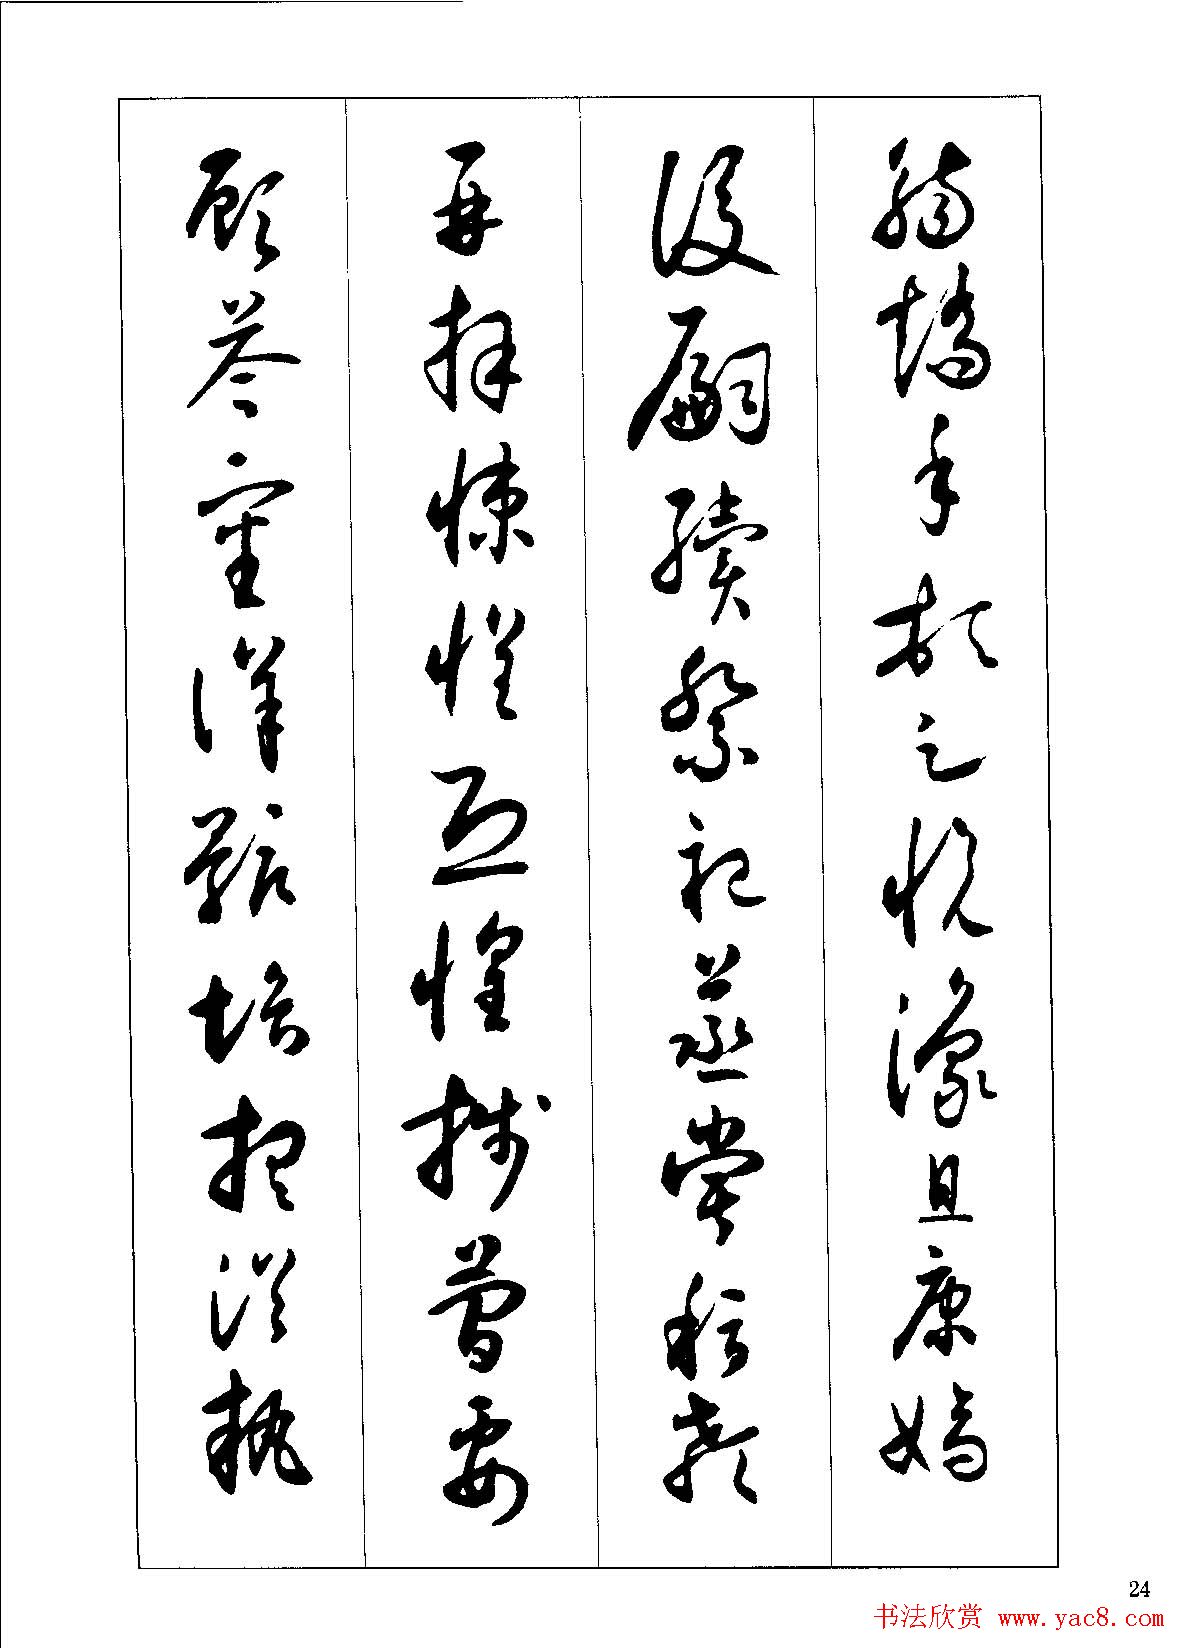 觴矯手頓足悅豫且康嫡
後嗣續祭祀蒸嘗稽顙
再拜悚懼恐惶牋簡要
顧答審詳骸垢想浴執
24
书法欣赏 www.yac8.com